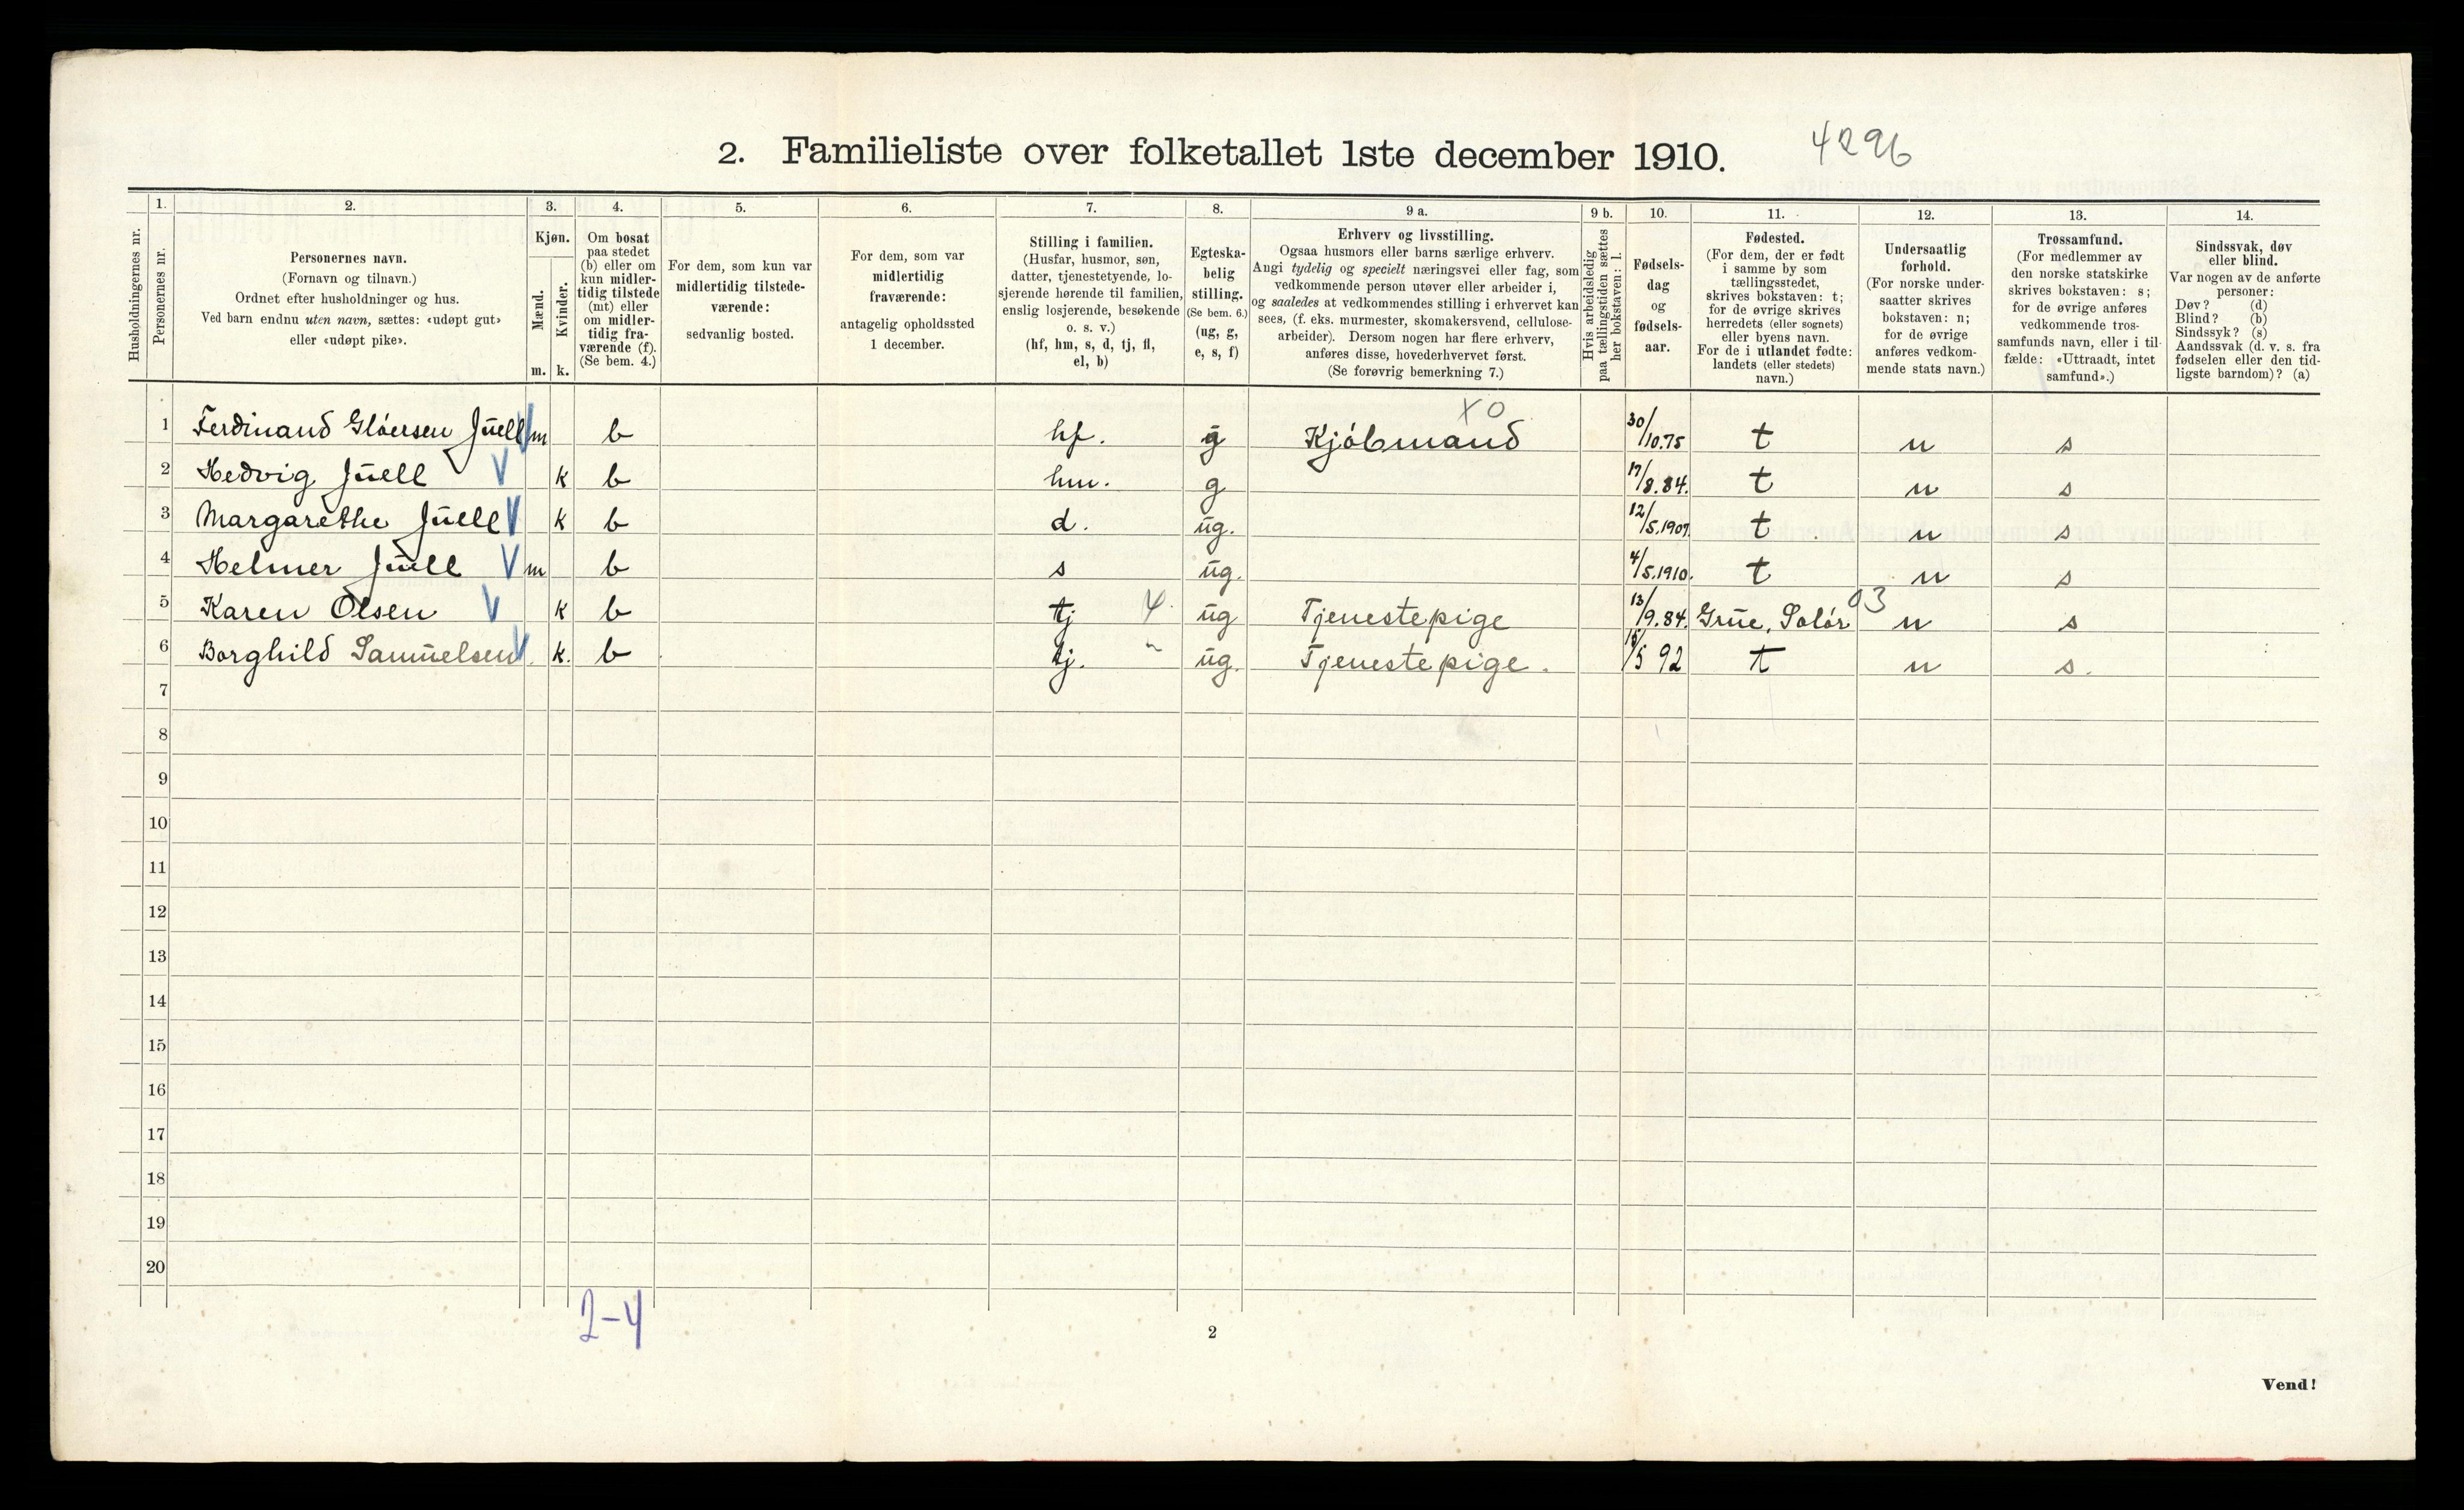 2. Familieliste over folketallet 1ste december 1910. 4296
Husholdningernes nr.
1. Personernes nr.
2. Personernes navn. (Fornavn og tilnavn.) Ordnet efter husholdninger og hus. Ved barn endnu uten navn, sættes: «udøpt gut» eller «udøpt pike».
3. Kjøn. Mænd. m. Kvinder. k.
4. Om bosat paa stedet (b) eller om kun midlertidig tilstede (mt) eller om midlertidig fraværende (f). (Se bem. 4.)
5. For dem, som kun var midlertidig tilstedeværende: sedvanlig bosted.
6. For dem, som var midlertidig fraværende: antagelig opholdssted 1 december.
7. Stilling i familien. (Husfar, husmor, søn, datter, tjenestetyende, losjerende hørende til familien, enslig losjerende, besøkende o. s. v.) (hf, hm, s, d, tj, fl, el, b)
8. Egteskabelig stilling. (Se bem. 6.) (ug, g, e, s, f)
9 a. Erhverv og livsstilling. Ogsaa husmors eller barns særlige erhverv. Angi tydelig og specielt næringsvei eller fag, som vedkommende person utøver eller arbeider i, og saaledes at vedkommendes stilling i erhvervet kan sees, (f. eks. murmester, skomakersvend, cellulosearbeider). Dersom nogen har flere erhverv, anføres disse, hovederhvervet først. (Se forøvrig bemerkning 7.)
9 b. Hvis arbeidsledig paa tællingstiden sættes her bokstaven: l.
10. Fødselsdag og fødselsaar.
11. Fødested. (For dem, der er født i samme by som tællingsstedet, skrives bokstaven: t; for de øvrige skrives herredets (eller sognets) eller byens navn. For de i utlandet fødte: landets (eller stedets) navn.)
12. Undersaatlig forhold. (For norske undersaatter skrives bokstaven: n; for de øvrige anføres vedkommende stats navn.)
13. Trossamfund. (For medlemmer av den norske statskirke skrives bokstaven: s; for de øvrige anføres vedkommende trossamfunds navn, eller i tilfælde: «Uttraadt, intet samfund».)
14. Sindssvak, døv eller blind. Var nogen av de anførte personer: Døv? (d) Blind? (b) Sindssyk? (s) Aandssvak (d. v. s. fra fødselen eller den tidligste barndom)? (a)
X0
1 Ferdinand Gløersen Juell m b hf. g Kjøbmand 30/10.75 t n s
2 Hedvig Juell k b hm. g 17/8.84. t n s
3 Margarethe Juell k b d. ug. 12/5.1907. t n s
4 Helmer Juell m b s ug. 4/5.1910. t n s
5 Karen Olsen k b tj 4. ug Tjenestepige 13/9.84. Grue, Solør 03 n s
6 Borghild Samuelsen k. b tj. " ug. Tjenestepige. 15/5 92 t n s.
7
8
9
10
11
12
13
14
15
16
17
18
19
20
2-4
2
Vend!